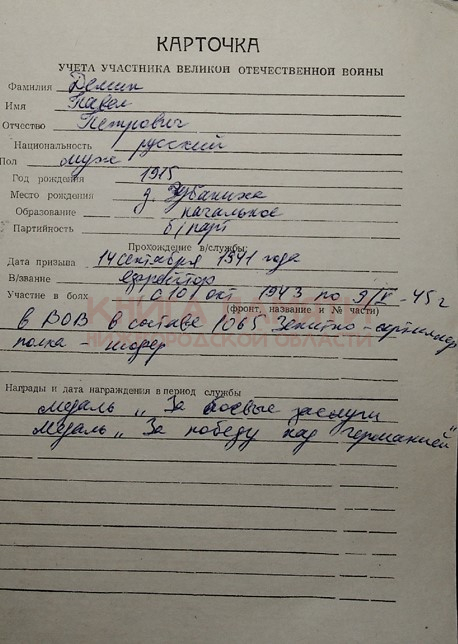 КАРТОЧКА
УЧЕТА УЧАСТНИКА ВЕЛИКОЙ ОТЕЧЕСТВЕННОЙ ВОЙНЫ
Фамилия Демин
Имя Павел
Отчество Петрович
Национальность русский
Пол муж
Год рождения 1915
Место рождения д. Зубаниха
Образование начальное
Партийность б/парт
Прохождение в/службы:
Дата призыва 14 сентября 1941 года
В/звание ефрейтор
Участие в боях с 10 окт 1943 по 9/V-45 г
(фронт, название и № части)
КНИГА ПАМЯТИ
в ВОВ в составе 1065 Зенитно-артиллер
НИЖЕГОРОДСКОЙ ОБЛАСТИ
полка - шофер
Награды и дата награждения в период службы
медаль „За боевые заслуги
Медаль „За победу над Германией"